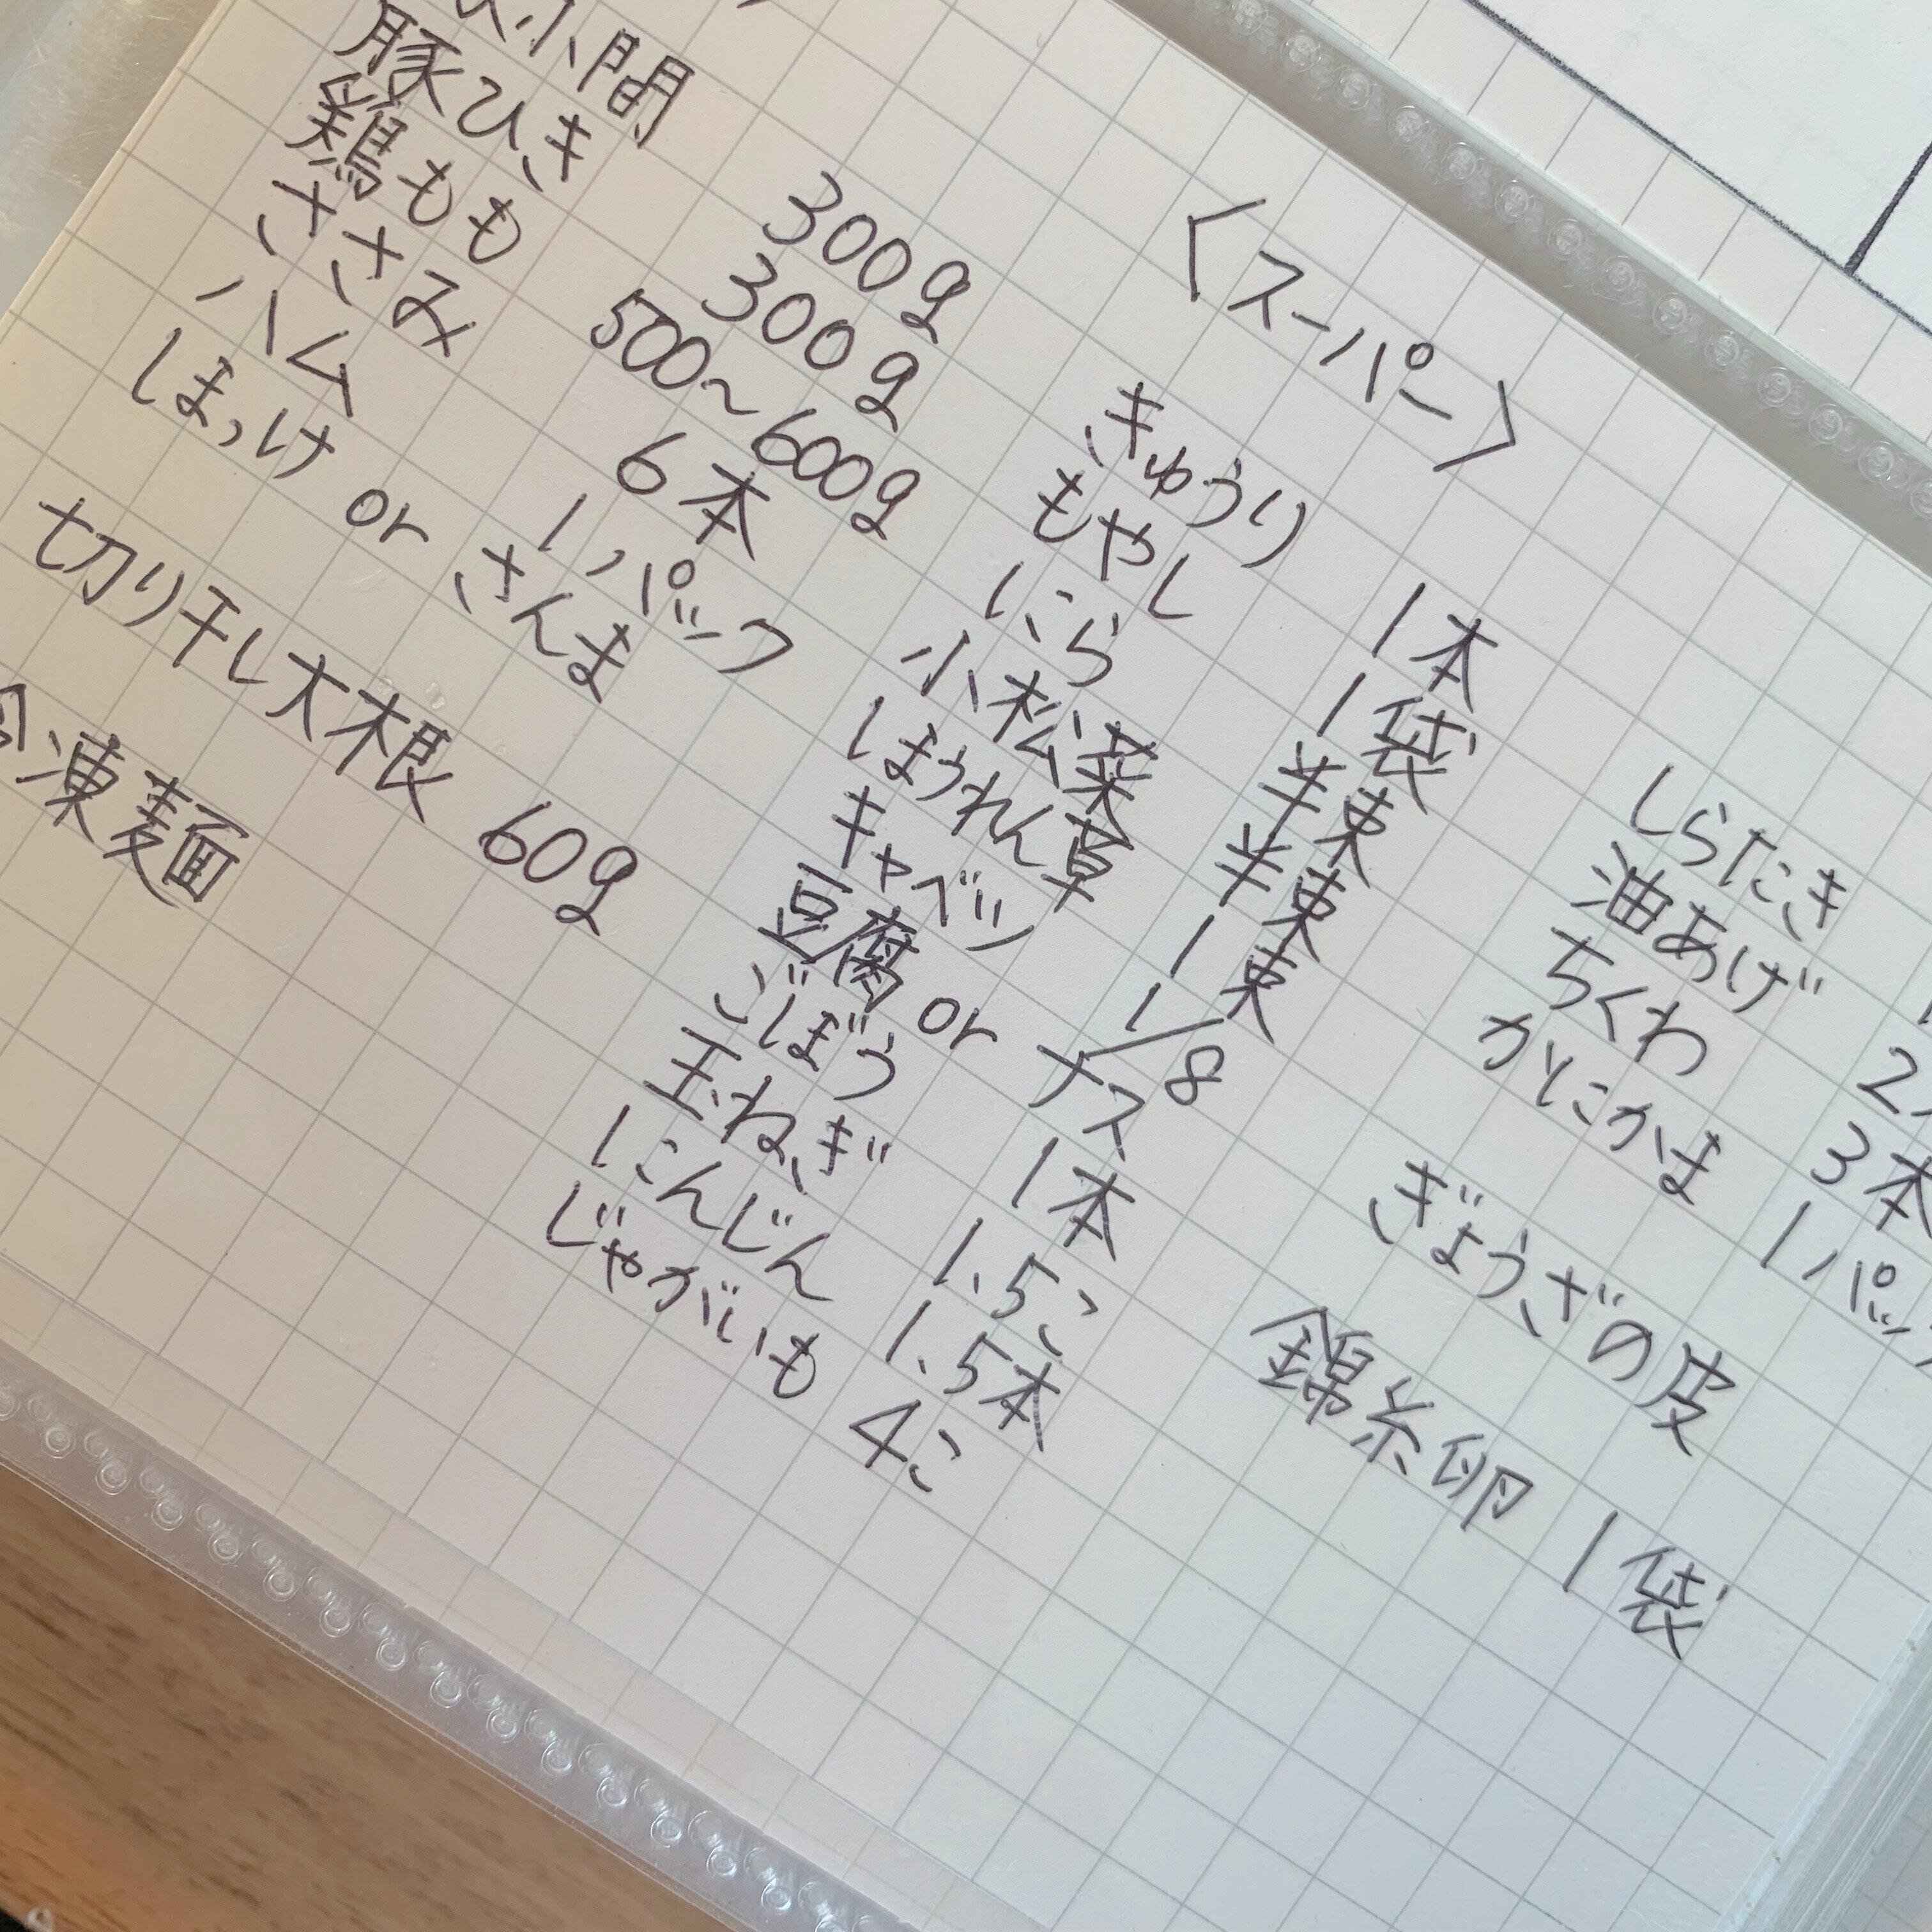 小間 300g
豚ひき 300g
鶏もも 500~600g
ささみ 6本
ハム 1パック
ほっけ or さんま
切り干し大根 60g
冷凍麺
<スーパー>
きゅうり 1本
もやし 1袋
にら 半束
小松菜 半束
ほうれん草 1束
キャベツ 1/8
豆腐 or ナス
ごぼう 1本
玉ねぎ 1.5こ
にんじん 1.5本
じゃがいも 4こ
しらたき
油あげ 2
ちくわ 3本
かにかま 1パック
ぎょうざの皮
錦糸卵 1袋